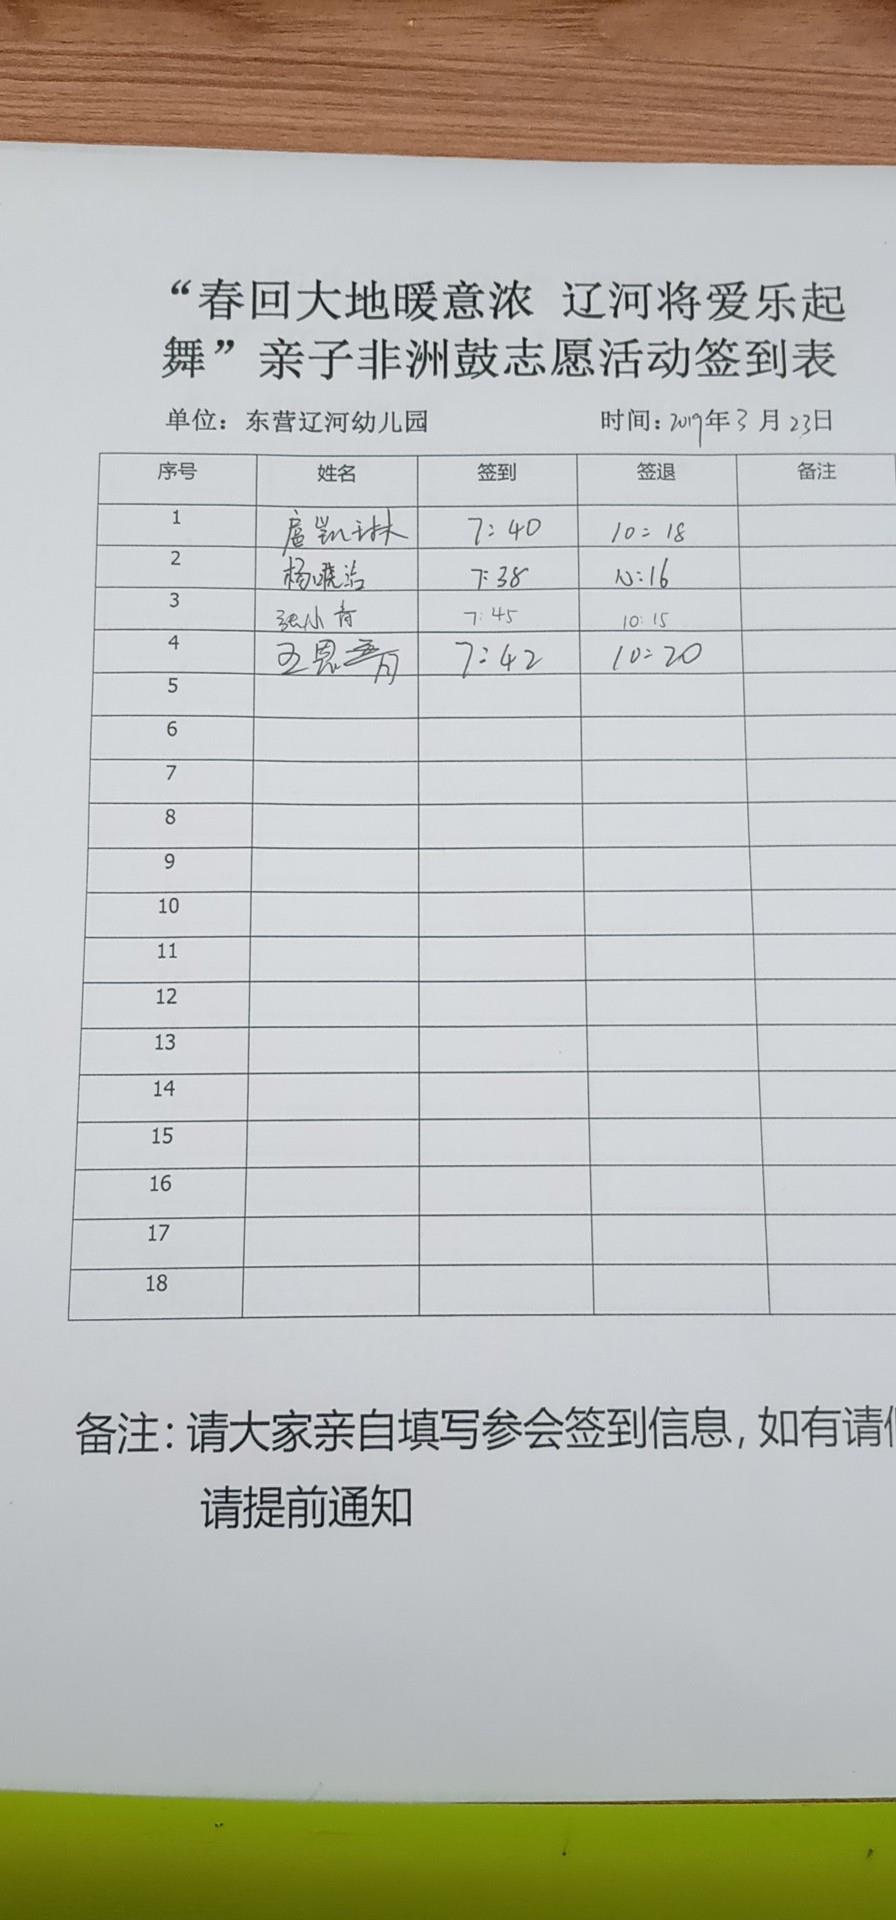 “春回大地暖意浓 辽河将爱乐起
舞”亲子非洲鼓志愿活动签到表
单位：东营辽河幼儿园 时间：2019年3月23日
序号 姓名 签到 签退 备注
1 凯琳 7:40 10:18
2 杨晓 7:38 10:16
3 张小青 7:45 10:15
4 王恩 7:42 10:20
5
6
7
8
9
10
11
12
13
14
15
16
17
18
备注：请大家亲自填写参会签到信息，如有请
请提前通知